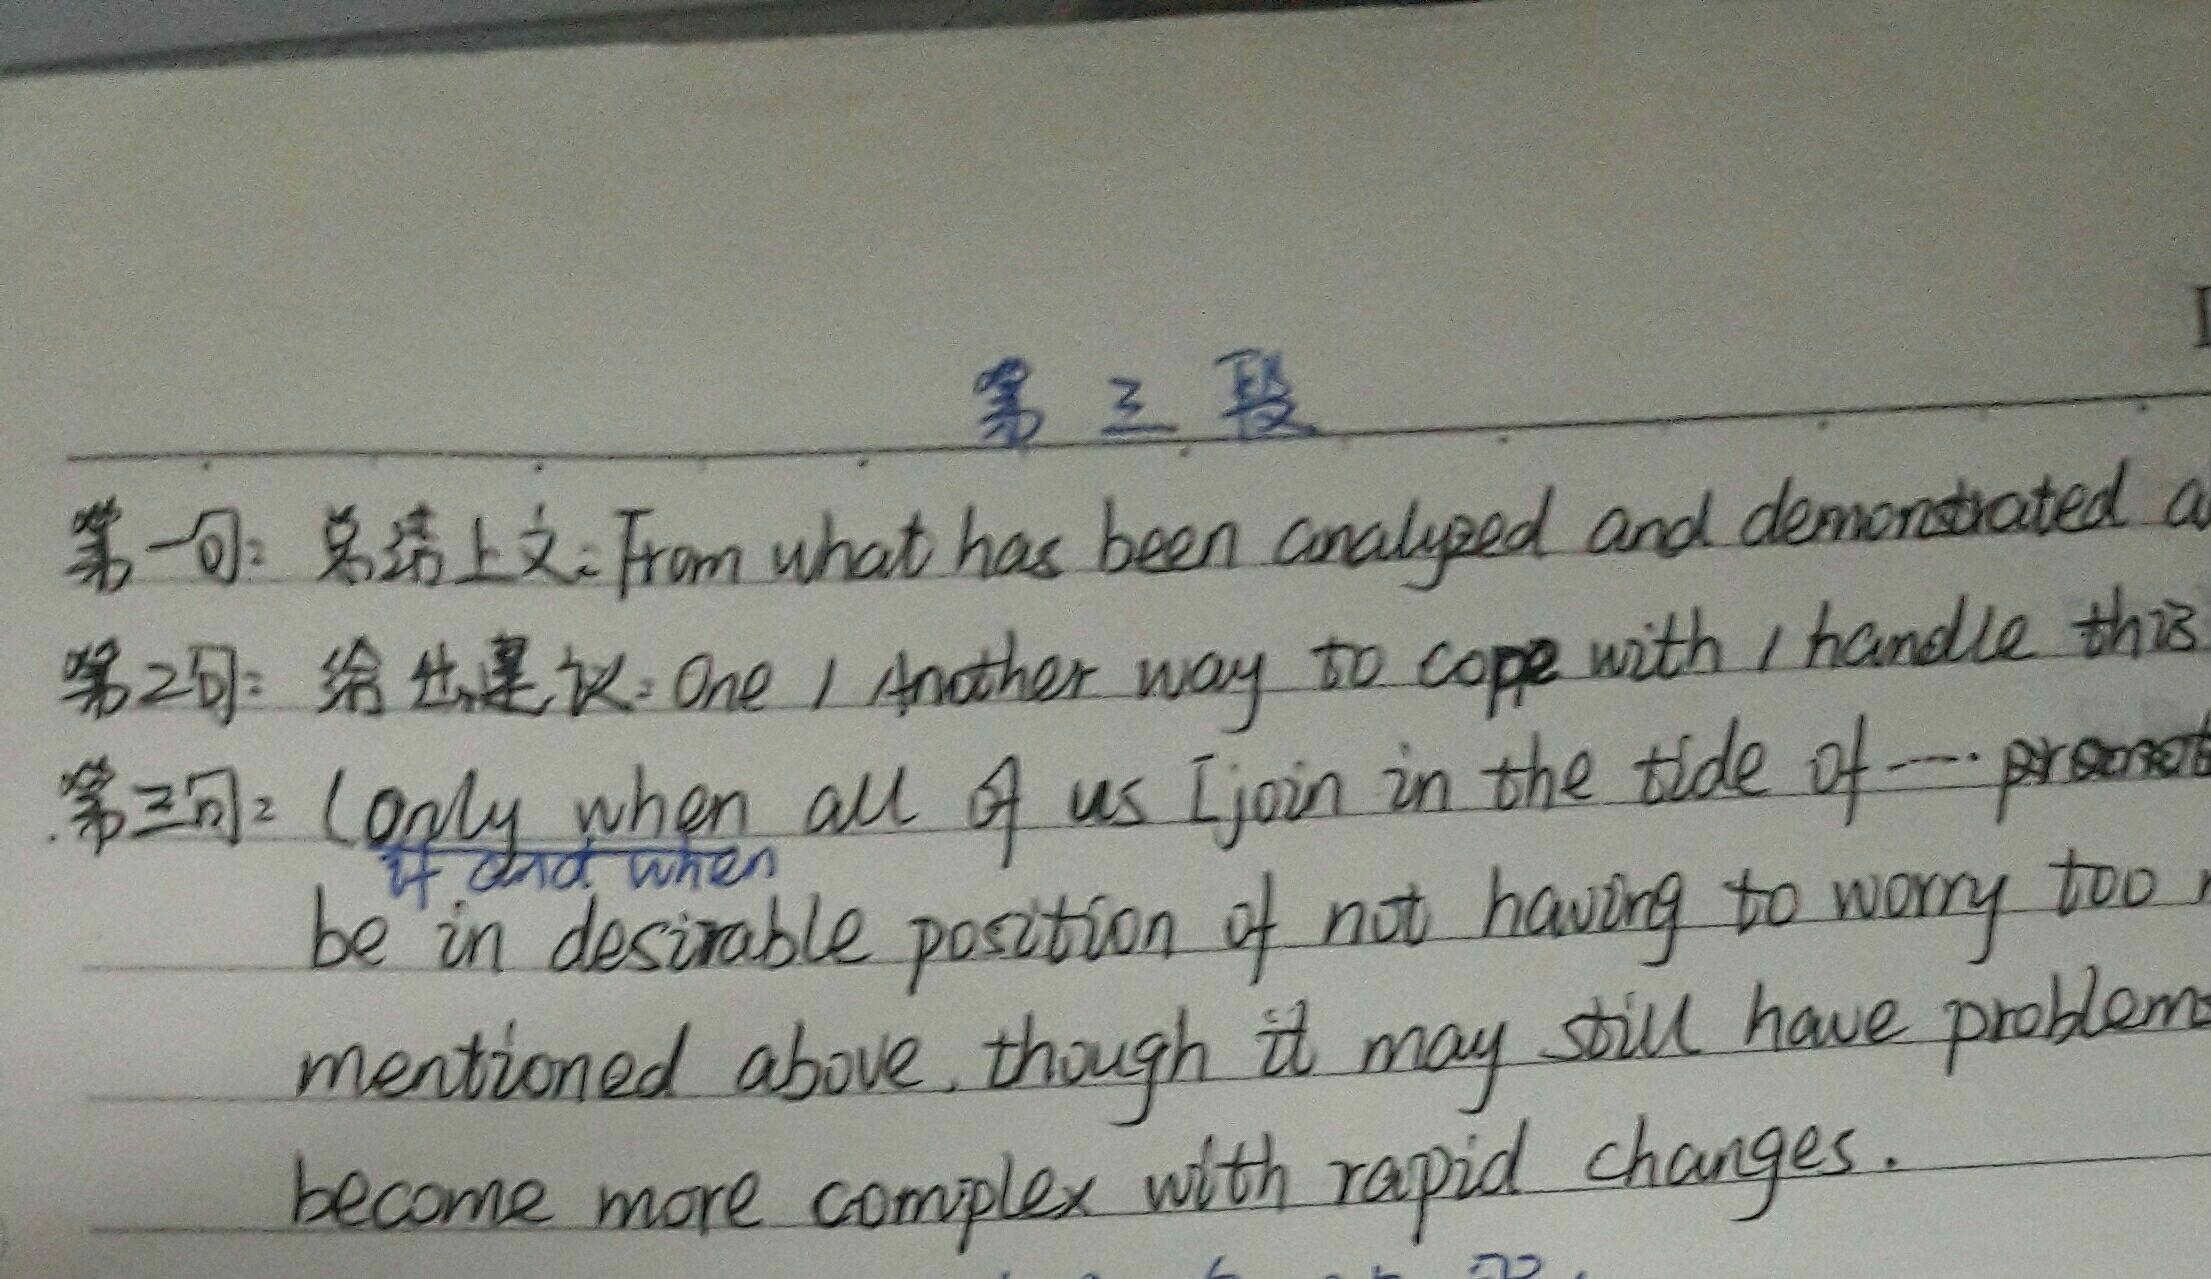 第三段
第一句: 总结上文: From what has been analyzed and demonstrated
第2句: 给出建议: One / Another way to cope with / handle this
第三句: (only when all of us [join in the tide of ....
if and when
be in desirable position of not having to worry too
mentioned above. though it may still have problems
become more complex with rapid changes.